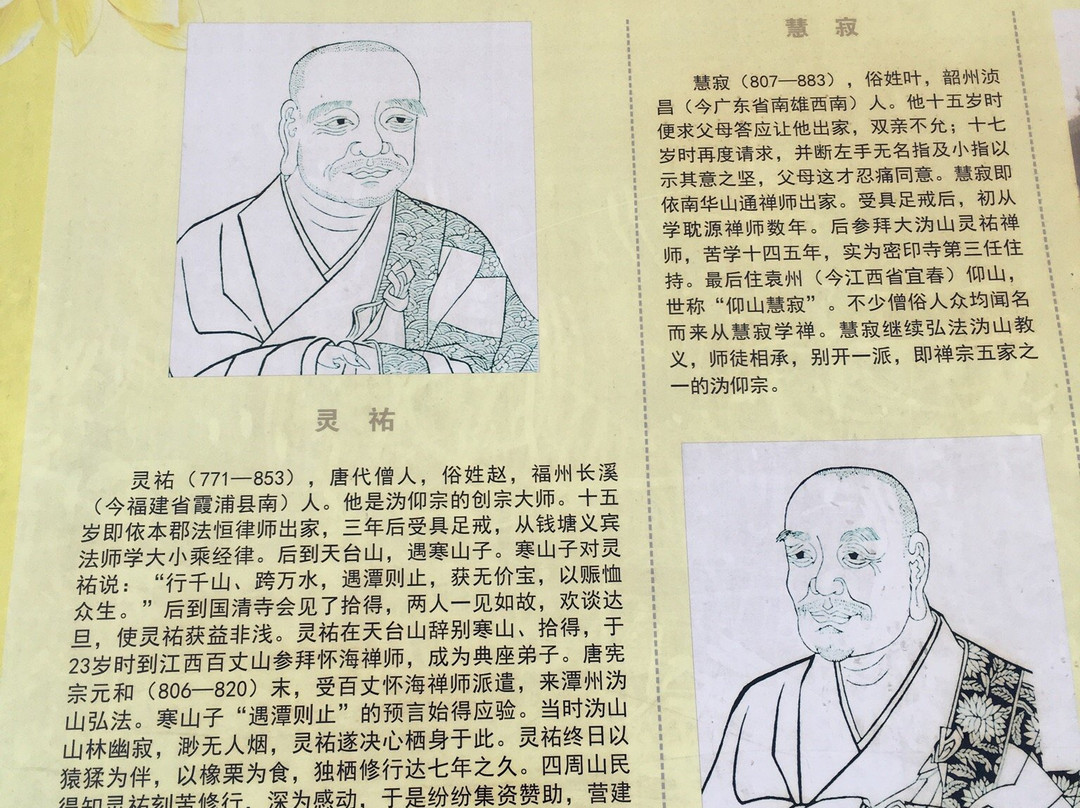 灵祐
灵祐（771—853），唐代僧人，俗姓赵，福州长溪
（今福建省霞浦县南）人。他是沩仰宗的创宗大师。十五
岁即依本郡法恒律师出家，三年后受具足戒，从钱塘义宾
法师学大小乘经律。后到天台山，遇寒山子。寒山子对灵
祐说：“行千山、跨万水，遇潭则止，获无价宝，以赈恤
众生。”后到国清寺会见了拾得，两人一见如故，欢谈达
旦，使灵祐获益非浅。灵祐在天台山辞别寒山、拾得，于
23岁时到江西百丈山参拜怀海禅师，成为典座弟子。唐宪
宗元和（806—820）末，受百丈怀海禅师派遣，来潭州沩
山弘法。寒山子“遇潭则止”的预言始得应验。当时沩山
山林幽寂，渺无人烟，灵祐遂决心栖身于此。灵祐终日以
猿猱为伴，以橡栗为食，独栖修行达七年之久。四周山民
得知灵祐刻苦修行，深为感动，于是纷纷集资赞助，营建
慧寂
慧寂（807—883），俗姓叶，韶州浈
昌（今广东省南雄西南）人。他十五岁时
便求父母答应让他出家，双亲不允；十七
岁时再度请求，并断左手无名指及小指以
示其意之坚，父母这才忍痛同意。慧寂即
依南华山通禅师出家。受具足戒后，初从
学耽源禅师数年。后参拜大沩山灵祐禅
师，苦学十四五年，实为密印寺第三任住
持。最后住袁州（今江西省宜春）仰山，
世称“仰山慧寂”。不少僧俗人众均闻名
而来从慧寂学禅。慧寂继续弘法沩山教
义，师徒相承，别开一派，即禅宗五家之
一的沩仰宗。